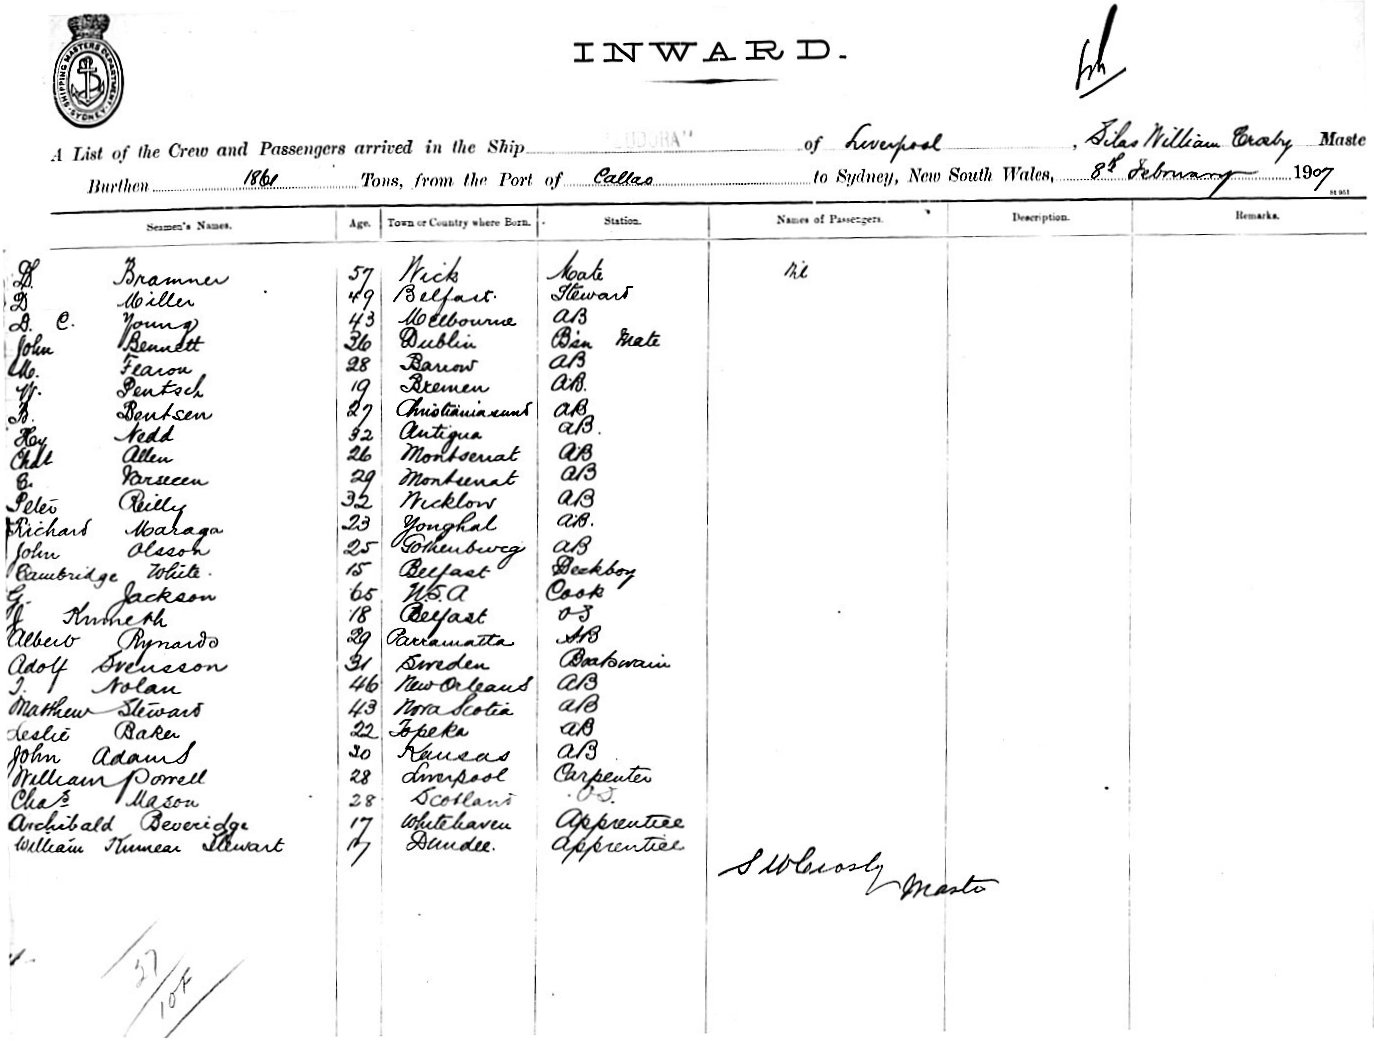 SHIPPING MASTERS DEPARTMENT SYDNEY
INWARD.
A List of the Crew and Passengers arrived in the Ship of Liverpool, Silas William Crosby Maste
Burthen 1861 Tons, from the Port of Callao to Sydney, New South Wales, 8th February 1907
Seamen's Names. Age. Town or Country where Born. Station. Names of Passengers. Description. Remarks.
D. Bramner 57 Wick Mate Nil
D Miller 49 Belfast. Steward
D. C. Young 43 Melbourne AB
John Bennett 36 Dublin Bsn Mate
M. Fearon 28 Barrow AB
W. Pentsch 19 Bremen AB.
B. Bentsen 27 Christiansund AB
Hy Nedd 32 Antigua AB.
Chas Allen 26 Montserrat AB
29 Montserrat AB
Peter Reilly 32 Wicklow AB
Richard Maraga 23 Yonghal AB.
John Olsson 25 Gothenburg AB
Cambridge White. 15 Belfast Deckboy
G. Jackson 65 U.S.A Cook
J 18 Belfast OS
Albert Rynards 29 Parramatta AB
Adolf Svensson 31 Sweden Boatswain
J. Nolan 46 New Orleans AB
Matthew Steward 43 Nova Scotia AB
Leslie Baker 22 Topeka AB
John Adams 30 Kansas AB
William Powell 28 Liverpool Carpenter
Chas Mason 28 Scotland O.S.
Archibald Beveridge 17 Whitehaven Apprentice
William Kinnear Stewart 17 Dundee. Apprentice
S W Crosby Master
27